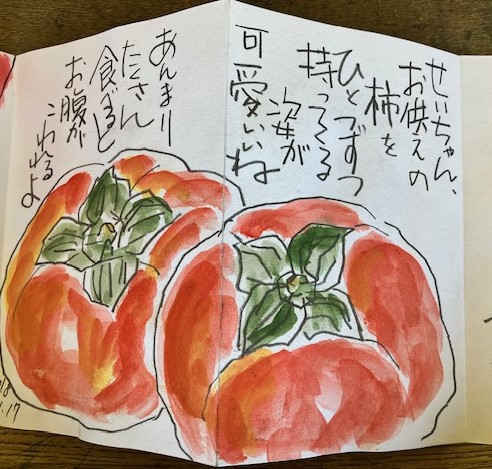 せいちゃん、
お供えの
柿を
ひとつずつ
持ってくる
姿が
可愛いいね
あんまり
たくさん
食べると
お腹が
こわれるよ
.17